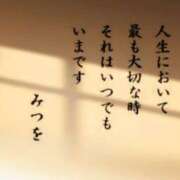 人生において
最も大切な時
それはいつでも
いまです
みつを